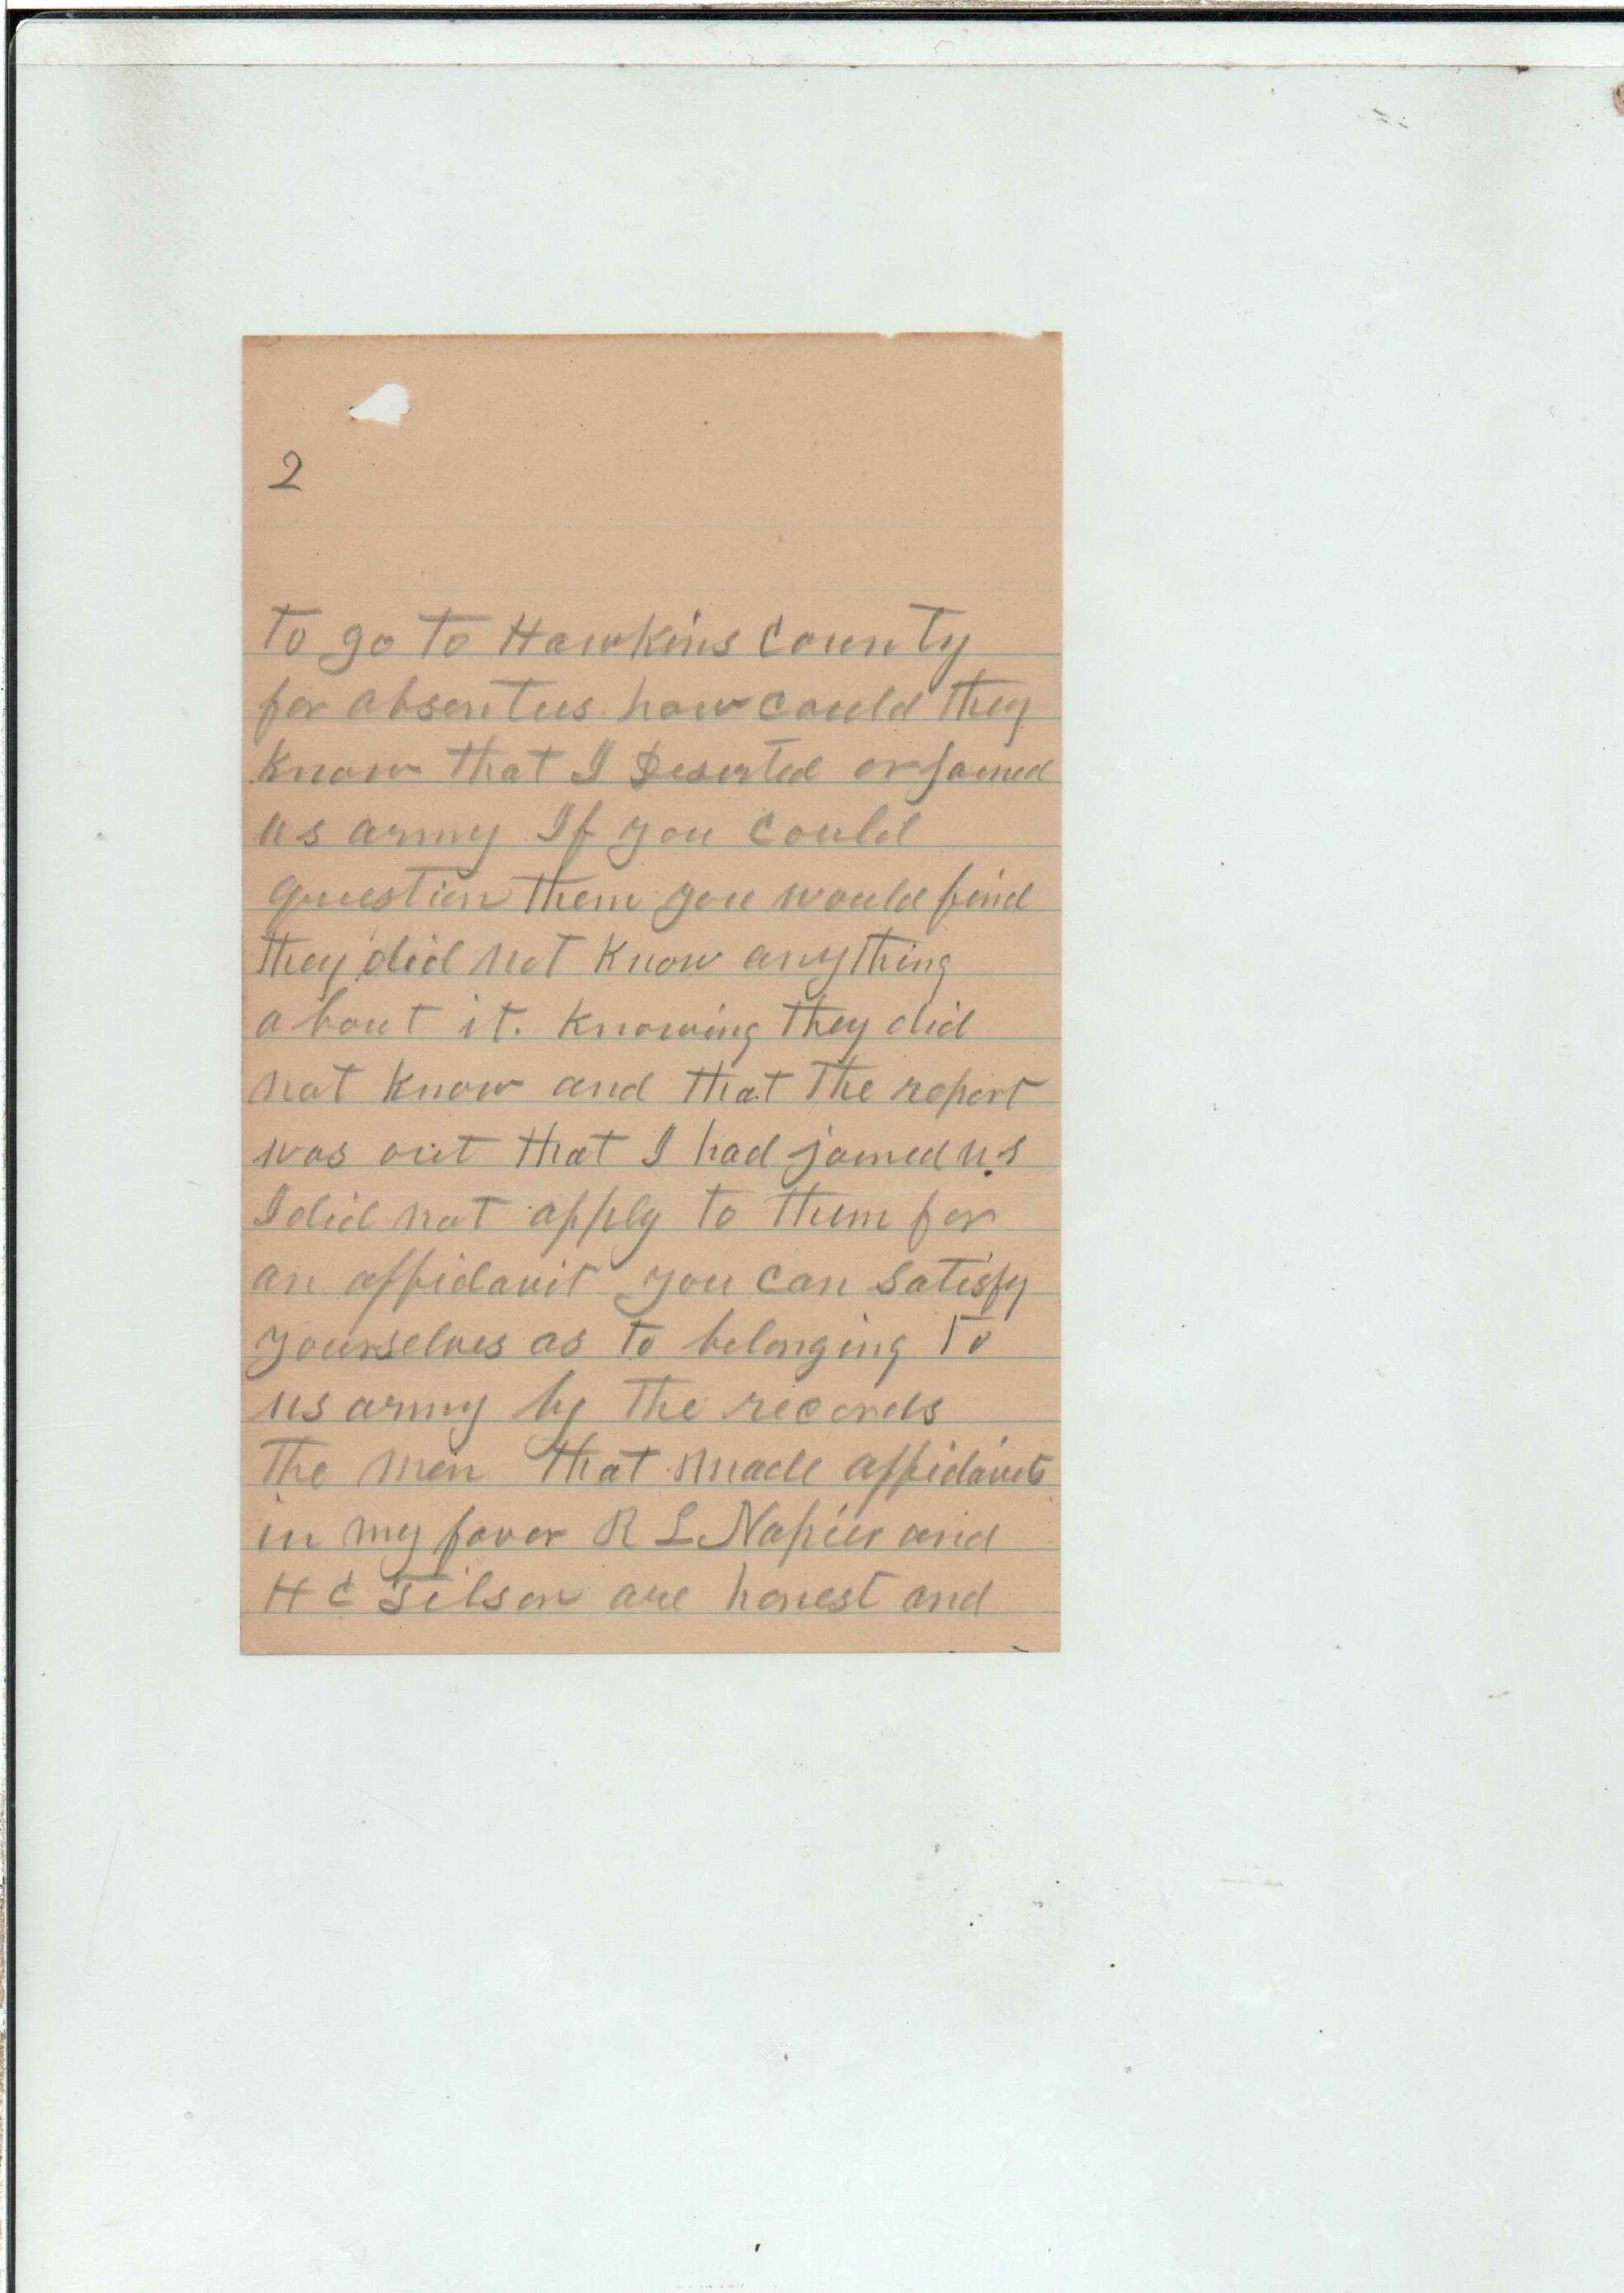 2
to go to Hawkins County
for absentees how could they
know that I Deserted or joined
us army If you could
question them you would find
they did not know anything
about it. Knowing they did
not know and that the report
was out that I had joined us
I did not apply to them for
an affidavit you can satisfy
yourselves as to belonging to
us army by the records
The men that made affidavits
in my favor R L Napier and
H C Tilson are honest and